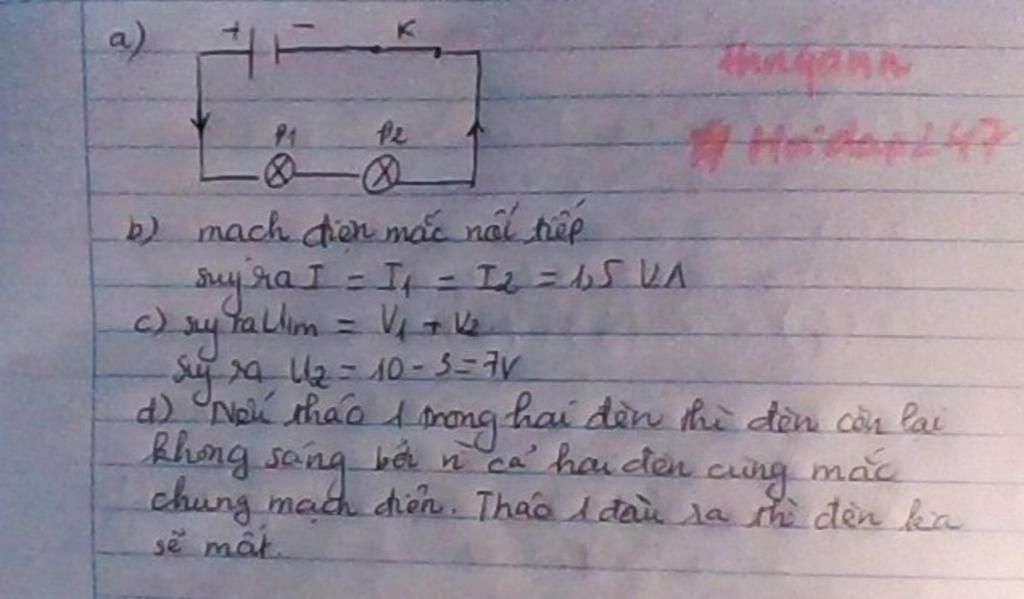 a)
+ - K
Đ1 Đ2
Hnngann
# Hoidap247
b) mạch điện mắc nối tiếp
suy ra I = I1 = I2 = 1,5 VA
c) suy ra Um = V1 + V2
suy ra U2 = 10 - 3 = 7V
d) Nếu tháo 1 trong hai đèn thì đèn còn lại
không sáng bởi vì cả hai đèn cùng mắc
chung mạch điện. Tháo 1 đầu ra thì đèn kia
sẽ mất.